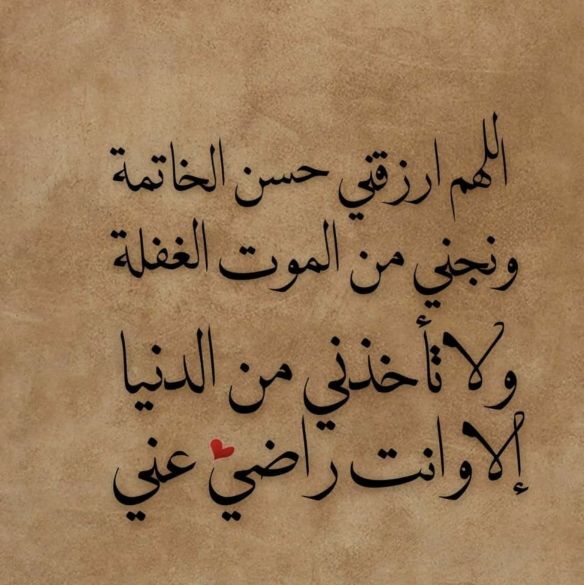 اللهم ارزقني حسن الخاتمة
ونجني من الموت الغفلة
ولا تأخذني من الدنيا
إلا وانت راضي عني